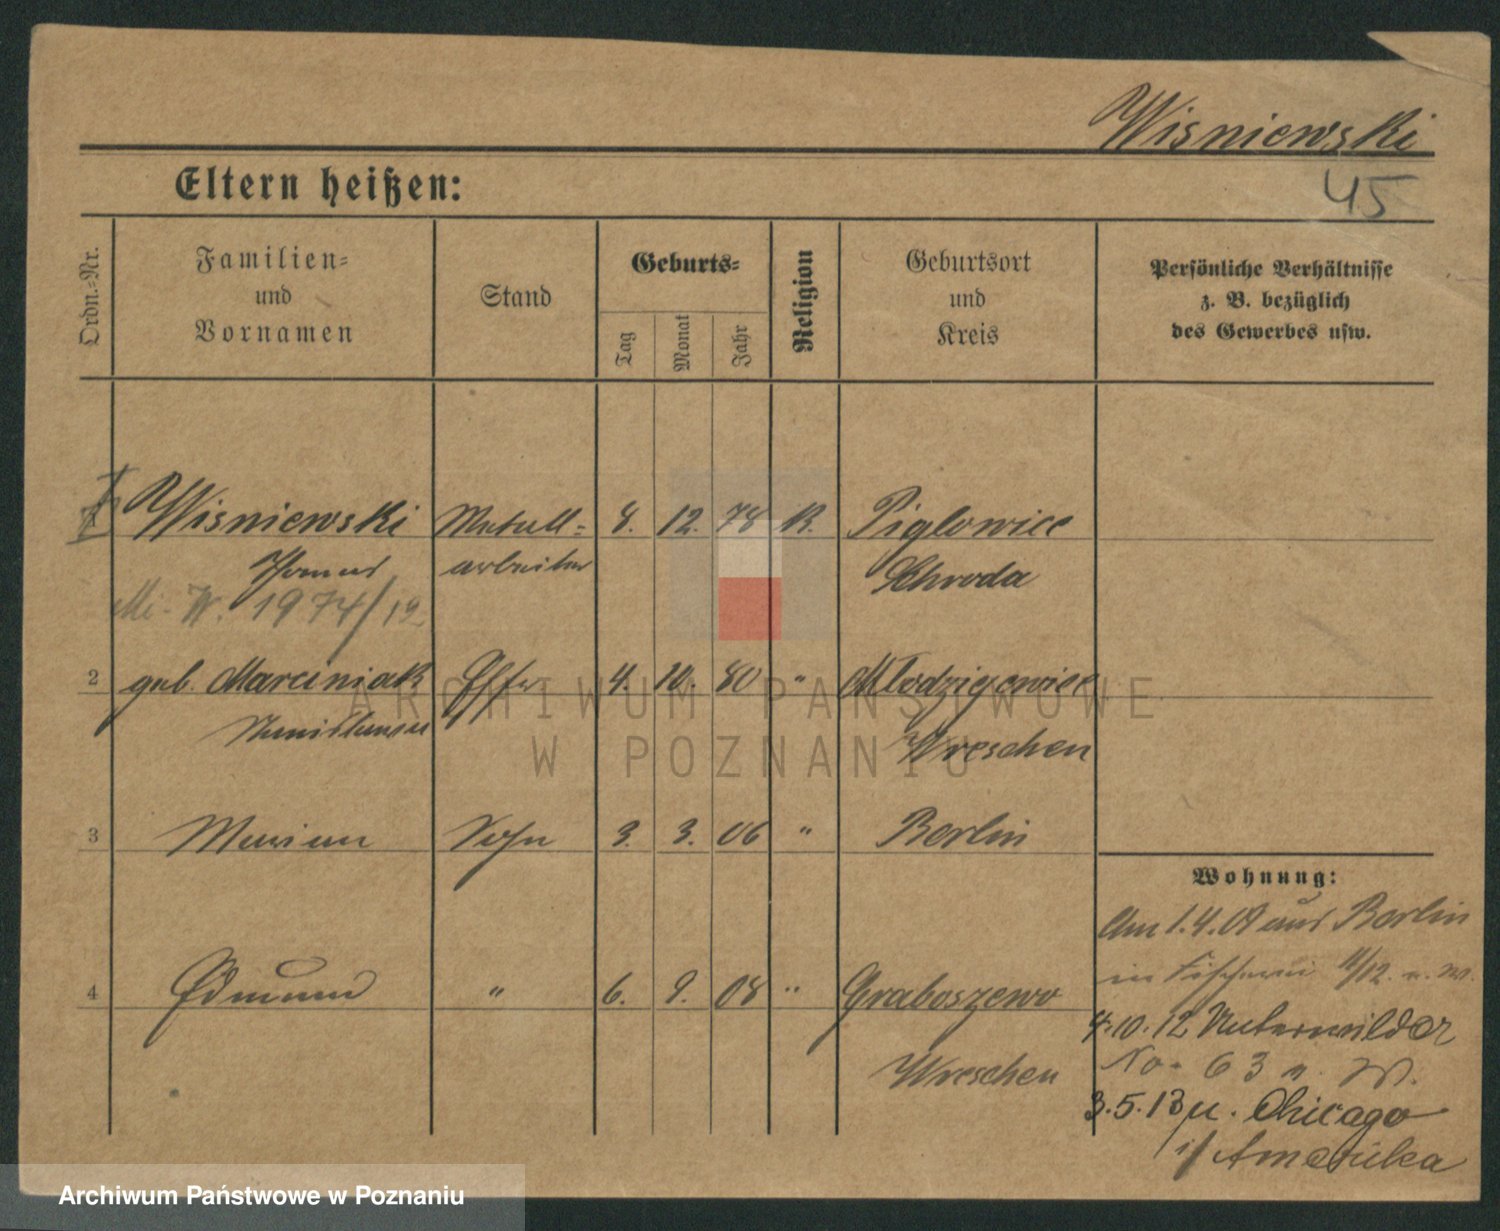 Wisniewski
Eltern heißen:
45
Ordn.=Nr.
Familien=
und
Vornamen
Stand
Geburts=
Tag
Monat
Jahr
Religion
Geburtsort
und
Kreis
Persönliche Verhältnisse
z. B. bezüglich
des Gewerbes usw.
1 Wisniewski Metall= 8. 12. 78 K. Piglowice
Thomas arbeiter Schroda
Mi- W. 1974/19
2 geb. Marciniak Ehfr 4. 10. 80 " Mlodzigowice
Stanislawa Wreschen
3 Marian Sohn 3. 3. 06 " Berlin
Wohnung:
Am 1.4.09 aus Berlin
in Fischerei 11/12. n. W.
4 Edmund " 6. 9. 08 " Graboszewo
Wreschen
4.10.12 Unterwilda
No. 63 n. W.
3.5.13 n. Chicago
i/ Amerika
ARCHIWUM PAŃSTWOWE
W POZNANIU
Archiwum Państwowe w Poznaniu